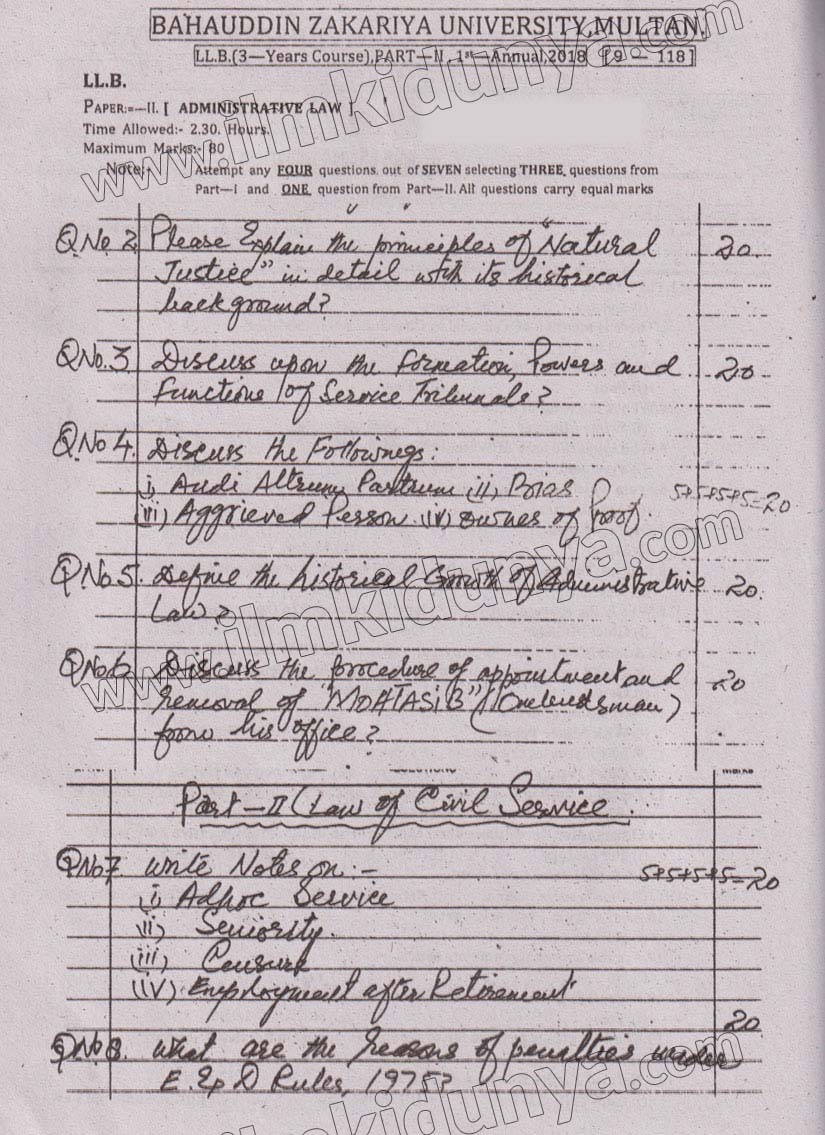 BAHAUDDIN ZAKARIYA UNIVERSITY,MULTAN.
LL.B.(3—Years Course),PART—II, 1st—Annual,2018 [9 — 118]
LL.B.
PAPER:=—II. [ ADMINISTRATIVE LAW ]
Time Allowed:- 2.30. Hours.
Maximum Marks:- 80
Note:- Attempt any FOUR questions out of SEVEN selecting THREE questions from
Part—I and ONE question from Part—II. All questions carry equal marks
Q.No 2 Please Explain the principles of "Natural 20.
Justice" in detail with its historical
background?
Q.No.3 Discuss upon the formation, Powers and 20
functions of Service Tribunals?
Q.No 4. Discuss the Followings:
i, Audi Altrum Partrum ii, Bias 5+5+5+5=20
iii) Aggrieved Person (iv) of Proof.
Q.No 5. Define the historical Growth of Administrative 20.
Law?
Q.No.6 Discuss the procedure of appointment and 20
removal of "MOHTASIB" (Ombudsman)
from his office?
Marks
Part-II (Law of Civil Service.
Q.No7 write Notes on:- 5+5+5+5=20
i) Adhoc Service
ii) Seniority.
(iii) Censure
(iv) Employment after Retirement
20
Q.No 8. what are the reasons of penalties under
E. & D Rules, 1975?
www.ilmkidunya.com
www.ilmkidunya.com
www.ilmkidunya.com
www.ilmkidunya.com